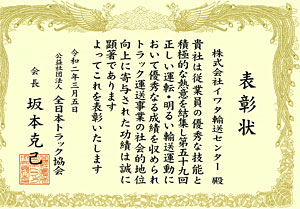 表彰状
株式会社イワタ輸送センター 殿
貴社は従業員の優秀な技能と
積極的な熱意を結集し第五十九回
正しい運転・明るい輸送運動に
おいて優秀なる成績を収められ
トラック運送事業の社会的地位
向上に寄与された功績は誠に
顕著であります
よってこれを表彰いたします
令和二年三月五日
公益社団法人 全日本トラック協会
会長 坂本克己